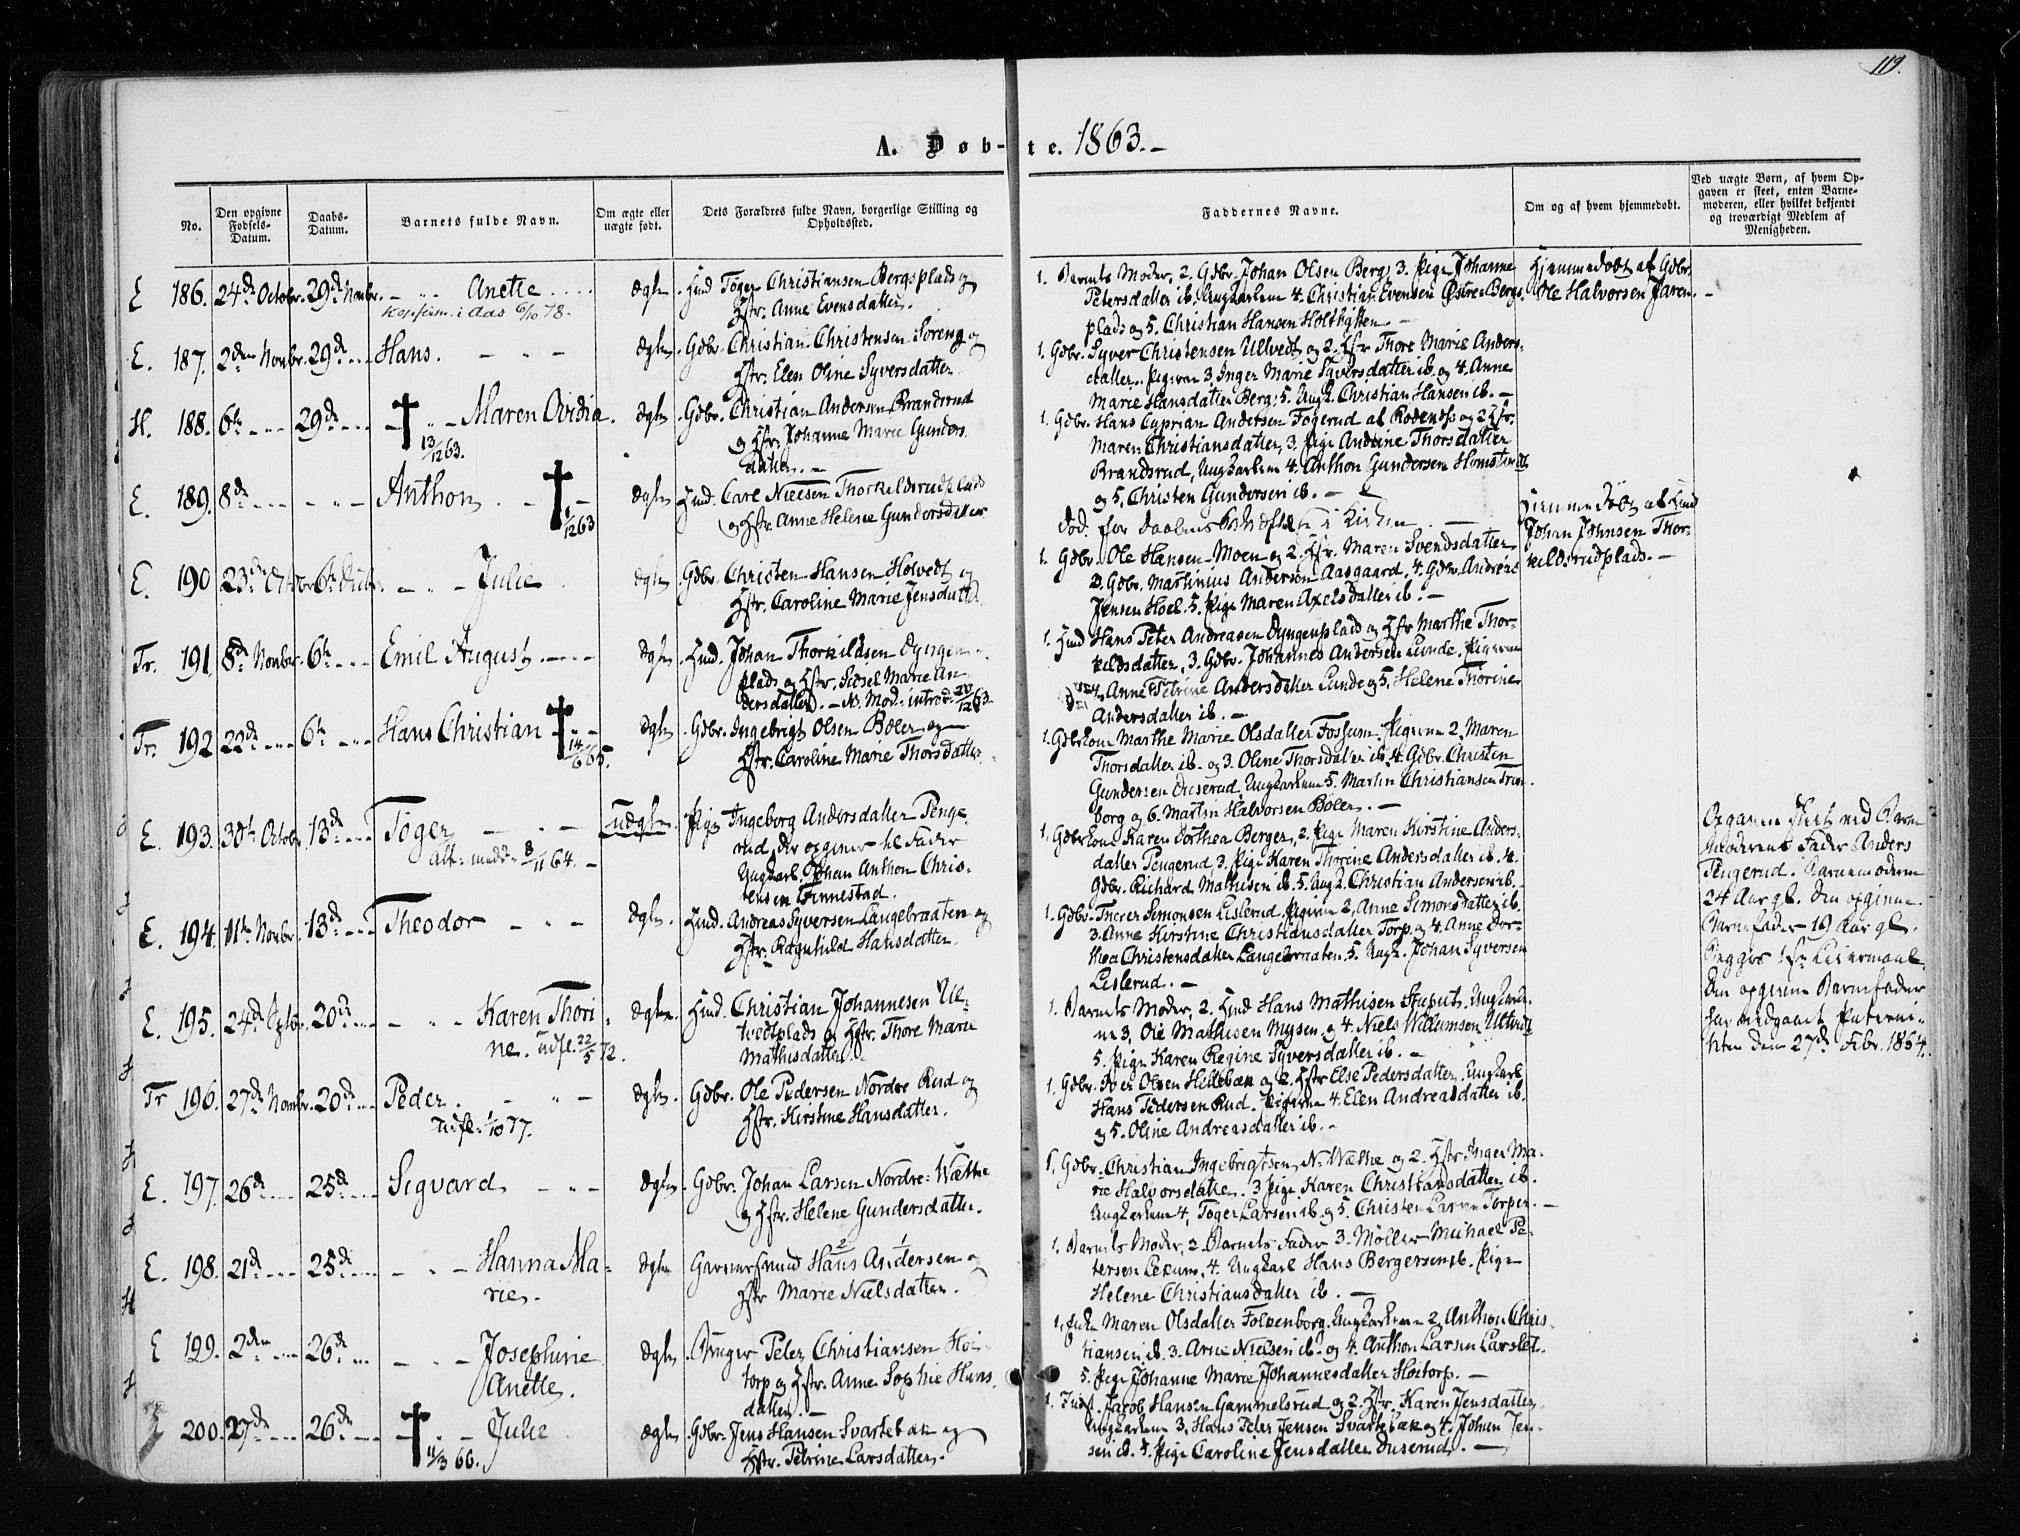 119.
A. Døb-te. 1863.-
No.
Den opgivne Fødsels-Datum.
Daabs-Datum.
Barnets fulde Navn.
Om ægte eller uægte født.
Dets Forældres fulde Navn, borgerlige Stilling og Opholdssted.
Faddernes Navne.
Om og af hvem hjemmedøbt.
Ved uægte Børn, af hvem Opgaven er skeet, enten Barnemoderen, eller hvilket bekjendt og troværdigt Medlem af Menigheden.
E 186. 24de Octobr. 29de Novbr. Anette Ægte Huusmd Tøger Christiansen Bergsplads og
Konfirm. i Aas 6/10 78.
Hstr. Anne Evensdatter.
1. Barnets Moder, 2. Gdbr. Johan Olsen Berg, 3. Pige Johanne
Petersdatter ib. Ungkarlene 4. Christian Evensen Østre Bergs-
plads og 5. Christian Hansen Holtbytten
Hjemmedøbt af Gdbr.
Ole Halvorsen Jaren.
E. 187. 2den Novbr. 29de Hans. Ægte Gdbr. Christian Christensen Søreng og
Hstr. Elen Oline Syversdatter
1. Gdbr. Syver Christensen Ultvedt og 2. Hstr Thore Marie Anders-
datter. Pigerne 3. Inger Marie Syversdatter ib. og 4. Anne
Marie Hansdatter Berg, 5. Ungk. Christian Hansen ib.
H. 188. 6te 29de Maren Ovidia. Ægte Gdbr. Christian Andersen Brandsrud
13/12 63.
og Hstr. Johanne Marie Gunders-
datter.
1. Gdbr. Hans Cyprian Andersen Fogerud af Rødenes og 2 Hstr.
Maren Christiansdatter, 3. Pige Andrine Thorsdatter
Brandsrud, Ungkarlene 4. Anthon Gundersen Homstvedt
og 5. Christen Gundersen ib.
E. 189. 8de Anthon Ægte Huusmd. Carl Nielsen Thorkildsrudplads
1/12 63
og Hstr Anne Helene Gundersdatter
Død før Daabens i Kirken
Hjemmedøbt af Huusmd
Johan Johnsen Thor-
kildsrudplads.
E. 190 23de Octobr 6te Decbr. Julie Ægte Gdbr. Christen Hansen Holvedt og
Hstr. Caroline Marie Jensdatter
1. Gdbr. Ole Hansen Moen og 2. Hstr. Maren Svendsdatter
3. Gdbr. Martinius Andersen Aasgaard, 4. Gdbr. Andreas
Jensen Hoel. 5. Pige Maren Axelsdatter ib.
Tr. 191. 8de Novbr. 6te Emil August Ægte Huusmd. Johan Thorkildsen Dyngen-
plads og Hstr. Sidsel Marie An-
dersdatter. N. Mod. introd 20/12 63
1. Huusmd Hans Peter Andreasen Dyngenplads og Hstr Marthe Thor-
kildsdatter, 3. Gdbr. Johannes Andersen Lunde. Pigerne
4. Anne Petrine Andersdatter Lunde og 5. Helene Thorine
Andersdatter ib.
Tr. 192 22de 6te Hans Christian Ægte Gdbr. Ingebrigt Olsen Boler og
14/6 65.
Hstr. Caroline Marie Thorsdatter
1. Gdbrkone Marthe Marie Olsdatter Fossum. Pigerne 2. Maren
Thorsdatter ib. og 3. Oline Thorsdatter ib. 4. Gdbr. Christen
Gundersen Duserud, Ungkarlene 5. Martin Christiansen Trøm-
borg og 6. Martin Halvorsen Boler.
E. 193. 30te Octobr. 13de Tøger Uægte Pige Ingeborg Andersdatter Penge-
Att. medd. 8/11 64.
rud, der opgiver til Fader
Ungkarl Johan Anthon Chris-
tensen Finnestad.
1. Gdbrkone Karen Dorthea Berger, 2. Pige Maren Kirstine Anders-
datter Pengerud, 3. Pige Karen Thorine Andersdatter ib. 4.
Gdbr. Richard Mathisen ib. 5. Ungk. Christian Andersen ib.
Opgaven skeet ved Barne-
moderens Fader Anders
Pengerud. Barnemoderen
24 Aar gl. Den opgivne
Barnefader 19 Aar gl.
Begges 1ste Leiermaal.
Den opgivne Barnefader
har vedgaaet Paterni-
teten den 27de Febr. 1864.
E. 194. 11te Novbr. 13de Theodor Ægte Huusmd. Andreas Syversen Langebraaten og
Hstr. Ragnhild Hansdatter.
1. Gdbr. Therer Simonsen Lislerud. Pigerne 2. Anne Simonsdatter ib.
3. Anne Kirstine Christiansdatter Torp og 4. Anne Dor-
thea Christensdatter Langebraaten, 5. Ungk. Johan Syversen
Lislerud.
E. 195. 24de Septbr. 20de Karen Thori- Ægte Huusmd. Christian Johannesen Ul-
ne. Udfl. 22/5 72.
tvedtplads og Hstr. Thore Marie
Mathisdatter
1. Barnets Moder, 2. Huusmd Hans Mathisen Stuput. Ungkarle-
ne 3. Ole Mathisen Mysen og 4. Niels Willumsen Ultvedt
5. Pige Karen Regine Syversdatter ib.
Tr 196. 27de Novbr. 20de Peder. Ægte Gdbr. Ole Pedersen Nordre Rud og
Udfl. 1/10 77.
Hstr. Kirstine Hansdatter.
1. Gdbr. Iver Olsen Hillebæk og 2. Hstr Else Pedersdatter. Ungkarl
Hans Pedersen Rud. Pigerne 4. Elen Andreasdatter ib.
og 5. Oline Andreasdatter ib.
E. 197. 26de 25de Sigvard Ægte Gdbr. Johan Larsen Nordre: Wæthe
og Hstr. Helene Gundersdatter.
1. Gdbr. Christian Ingebrigtsen N. Wæthe og 2. Hstr. Inger Ma-
rie Halvorsdatter. 3 Pige Karen Christiansdatter ib.
Ungkarlene 4. Tøger Larsen ib. og 5. Christen Larsen Torper.
E. 198. 21de 25de Hanna Ma- Ægte Garversvend Hans Andersen og
rie.
Hstr Marie Nielsdatter.
1. Barnets Moder, 2. Barnets Fader 3. Møller Michael Pe-
tersen Lekum, 4. Ungkarl Hans Bergersen ib. Pige
Helene Christiansdatter ib.
E 199. 2den 26de Josephine Ægte Bruger Peter Christiansen Høi-
Anette.
torp og Hstr. Anne Sophie Hans-
datter.
1. Enke Maren Olsdatter Folkenborg. Ungkarlene 2. Anthon Chris-
tiansen ib. 3. Arne Nielsen ib. og 4. Anthon Larsen Larslet.
5. Pige Johanne Marie Johannesdatter Høitorp.
200. 27de 26de Julie Ægte Gdbr. Jens Hansen Svartebæk og
11/3 66.
Hstr. Petrine Larsdatter.
1. Inds. Jacob Hansen Gammelsrud og 2. Hstr. Karen Jensdatter
Ungkarlene 3. Hans Peter Jensen Svartebæk og 4. Johan Jen-
sen ib. 5. Pige Caroline Jensdatter Duserud.